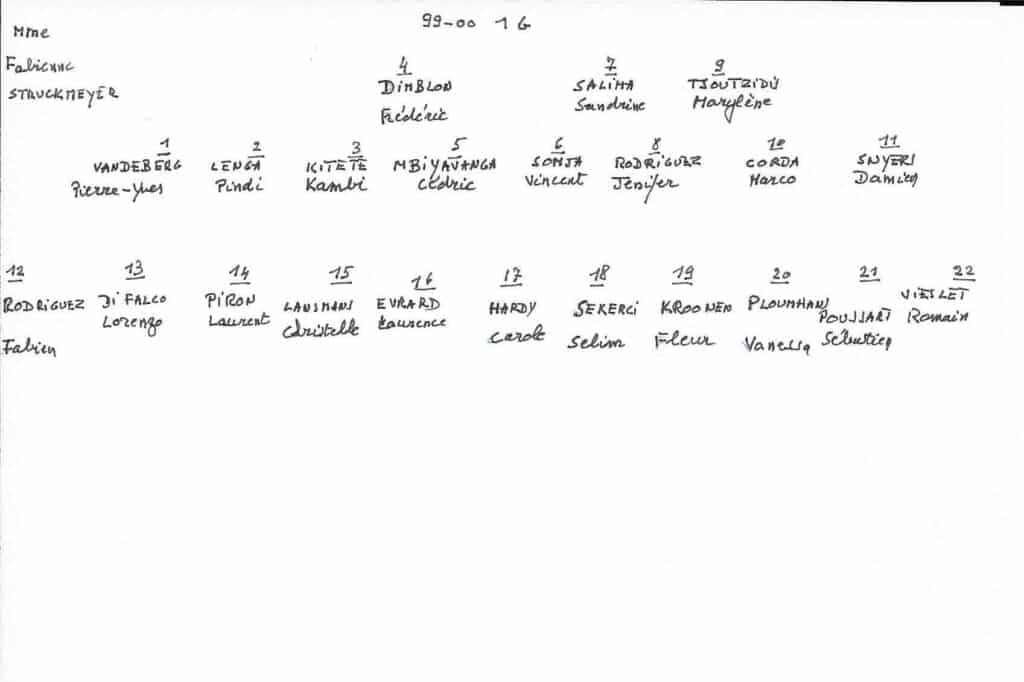 99-00 1G
Mme
Fabienne
STRUCKMEYER
4 7 9
DINBLON SALIMA TSOUTZIDIS
Frédéric Sandrine Marylène
1 2 3 5 6 8 10 11
VANDEBERG LENGA KITETE MBIYAVANGA SOMJA RODRIGUEZ CORDA SNYERS
Pierre-Yves Pindi Kambi Cédric Vincent Jenifer Marco Damien
12 13 14 15 16 17 18 19 20 21 22
RODRIGUEZ DI FALCO PIRON LAUSMANS EVRARD HARDY SEKERCI KROONEN PLOUMHANS POUSSART VIESLET
Fabien Lorenzo Laurent Christelle Laurence Carole Selim Fleur Vanessa Sébastien Romain